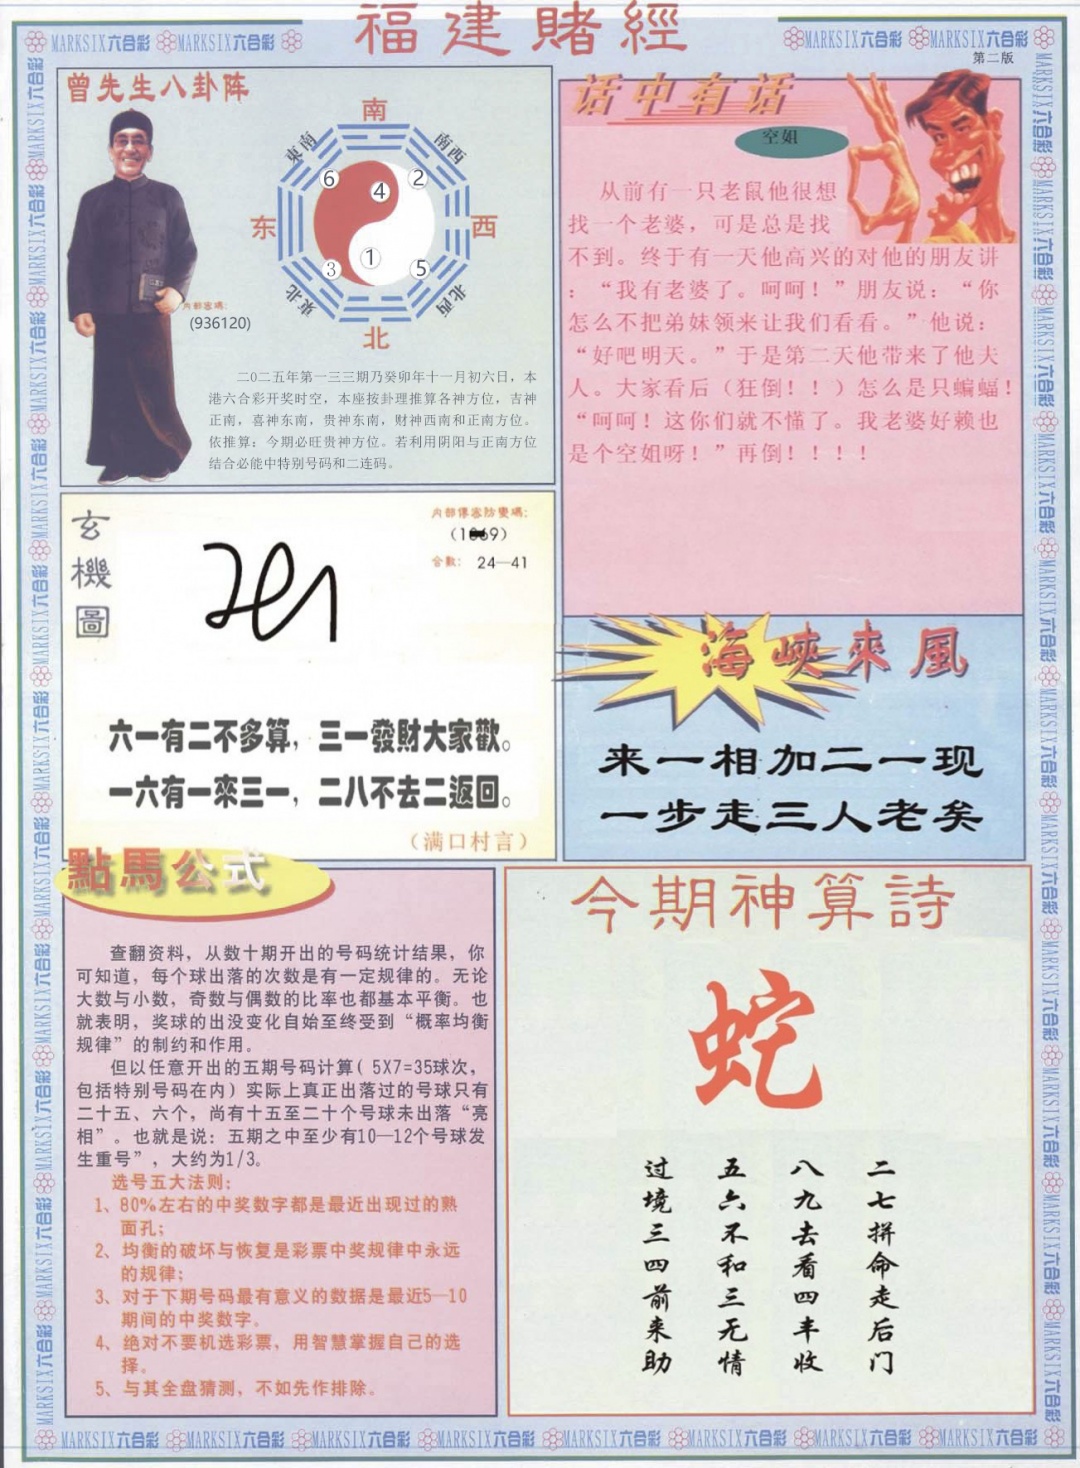 福建賭經
MARKSIX六合彩 MARKSIX六合彩
MARKSIX六合彩 MARKSIX六合彩
第二版
曾先生八卦阵
南
東南
南西
6
4
2
东
西
3
1
5
東北
北西
北
内部密碼:
(936120)
二〇二五年第一三三期乃癸卯年十一月初六日，本
港六合彩开奖时空，本座按卦理推算各神方位，吉神
正南，喜神东南，贵神东南，财神西南和正南方位。
依推算：今期必旺贵神方位。若利用阴阳与正南方位
结合必能中特别号码和二连码。
话中有话
空姐
从前有一只老鼠他很想
找一个老婆，可是总是找
不到。终于有一天他高兴的对他的朋友讲
：“我有老婆了。呵呵！”朋友说：“你
怎么不把弟妹领来让我们看看。”他说：
“好吧明天。”于是第二天他带来了他夫
人。大家看后（狂倒！！）怎么是只蝙蝠！
“呵呵！这你们就不懂了。我老婆好赖也
是个空姐呀！”再倒！！！！
玄機圖
内部傳密防變碼:
合數: 24—41
六一有二不多算，三一發財大家歡。
一六有一來三一，二八不去二返回。
（满口村言）
海峽來風
来一相加二一现
一步走三人老矣
點馬公式
查翻资料，从数十期开出的号码统计结果，你
可知道，每个球出落的次数是有一定规律的。无论
大数与小数，奇数与偶数的比率也都基本平衡。也
就表明，奖球的出没变化自始至终受到“概率均衡
规律”的制约和作用。
但以任意开出的五期号码计算( 5X7=35球次，
包括特别号码在内）实际上真正出落过的号球只有
二十五、六个，尚有十五至二十个号球未出落“亮
相”。也就是说：五期之中至少有10—12个号球发
生重号”，大约为1/3。
选号五大法则:
1、80%左右的中奖数字都是最近出现过的熟
面孔;
2、均衡的破坏与恢复是彩票中奖规律中永远
的规律;
3、对于下期号码最有意义的数据是最近5—10
期间的中奖数字。
4、绝对不要机选彩票，用智慧掌握自己的选
择。
5、与其全盘猜测，不如先作排除。
今期神算詩
蛇
二七拼命走后门
八九去看四丰收
五六不和三无情
过境三四前来助
MARKSIX六合彩 MARKSIX六合彩 MARKSIX六合彩 MARKSIX六合彩 MARKSIX六合彩 MARKSIX六合彩 MARKSIX六合彩 MARKSIX六合彩